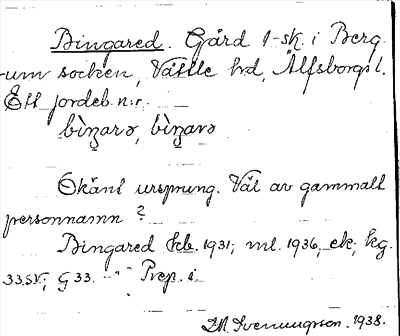 Bingared. Gård 1-sk. i Berg-
um socken, Vättle hd, Älfsborgs l.
Ett jordeb.n:r.
bìŋarə, bìŋarə
Okänt ursprung. Väl av gammalt
personnamn?
Bingared kb. 1931; ml. 1936, ek; kg.
33SV; G33. - " - Prep. i.
1938.